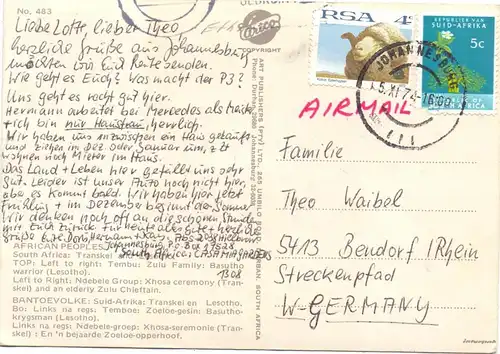 No. 483
COPYRIGHT
ART PUBLISHERS (PTY) LTD.
Liebe Lotte, lieber Theo
herzliche Grüße aus Johannesburg
möchten wir Euch heute senden.
Wie geht es Euch? Was macht der P3?
Uns geht es recht gut hier.
Hermann arbeitet bei Mercedes als
ich bin nur Hausfrau, herrlich.
Wir haben uns inzwischen ein Haus gekauft
und ziehen im Dez. oder Januar um, z.Zt
wohnen noch Mieter im Haus.
Das Land + Leben hier gefällt uns sehr
gut. Leider ist unser Auto noch nicht hier,
aber es kommt bald. Wir haben hier jetzt
Frühling + im Dezember beginnt der Sommer
Wir denken noch oft an die schönen Stunden
mit Euch zurück. Für heute alles Gute + herzl.
Grüße
Johannesburg, P.O. Box
South Africa
AFRICAN PEOPLES,
South Africa: Transkei
TOP: Left to right: Tembu; Zulu Family: Basutho
warrior (Lesotho).
Left to Right: Ndebele Group; Xhosa ceremony (Transkei)
and an elderly Zulu Chieftain.
BANTOEVOLKE: Suid-Afrika: Transkei en Lesotho,
Bo: Links na regs: Temboe: Zoeloe-gesin: Basutho-
krygsman (Lesotho).
Links na regs: Ndebele-groep: Xhosa-seremonie (Tran-
skei) : En 'n bejaarde Zoeloe-opperhoof.
RSA 4c
REPUBLIEK VAN
SUID-AFRIKA
5c
REPUBLIC OF
SOUTH AFRICA
JOHANNESBURG
AIRMAIL
Familie
Theo Waibel
5413 Bendorf /Rhein
Streckenpfad
W-GERMANY